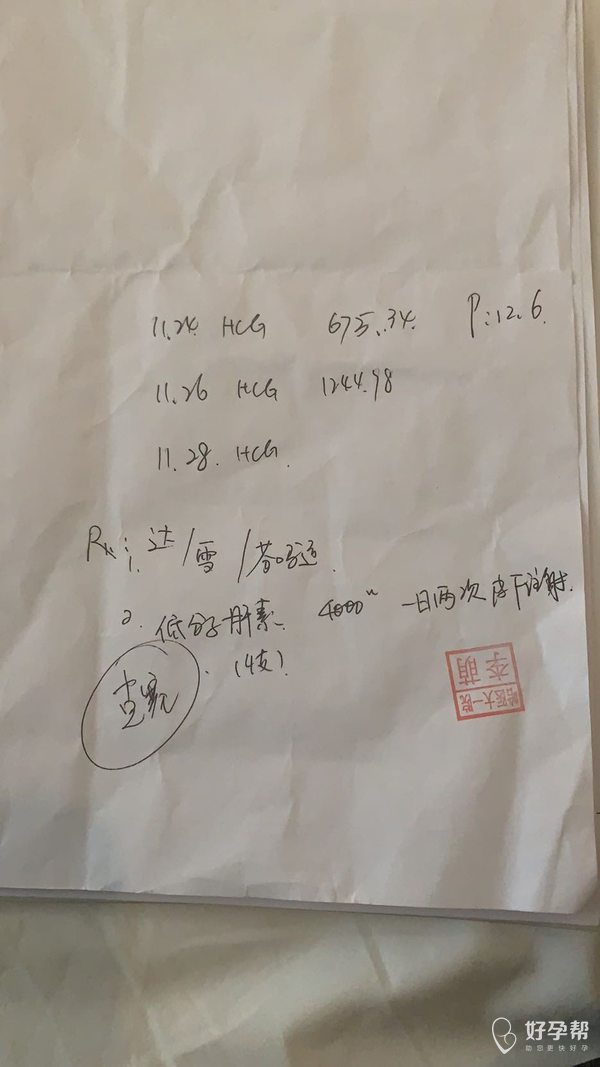 11.24 HCG 675.34. P:12.6.
11.26 HCG 1244.98
11.28. HCG.
Rx: 1. 达/雪/芬吗通.
2. 低分子肝素. 4000u 一日两次皮下注射.
(4支).
李萌
哈医大一院
好孕帮
助您更快好孕